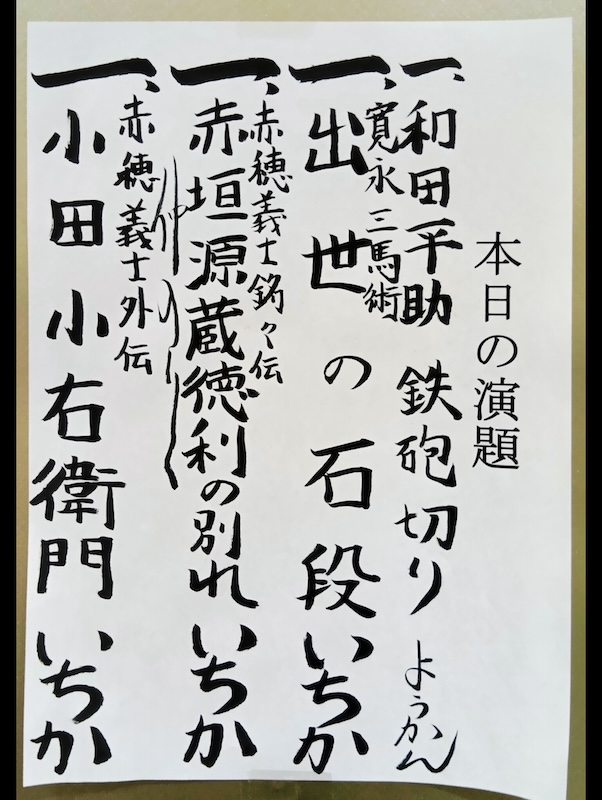 本日の演題
一、和田平助 鉄砲切り ようかん
寛永三馬術
一、出世の石段 いちか
赤穂義士銘々伝
一、赤垣源蔵徳利の別れ いちか
赤穂義士外伝
一、小田小右衛門 いちか